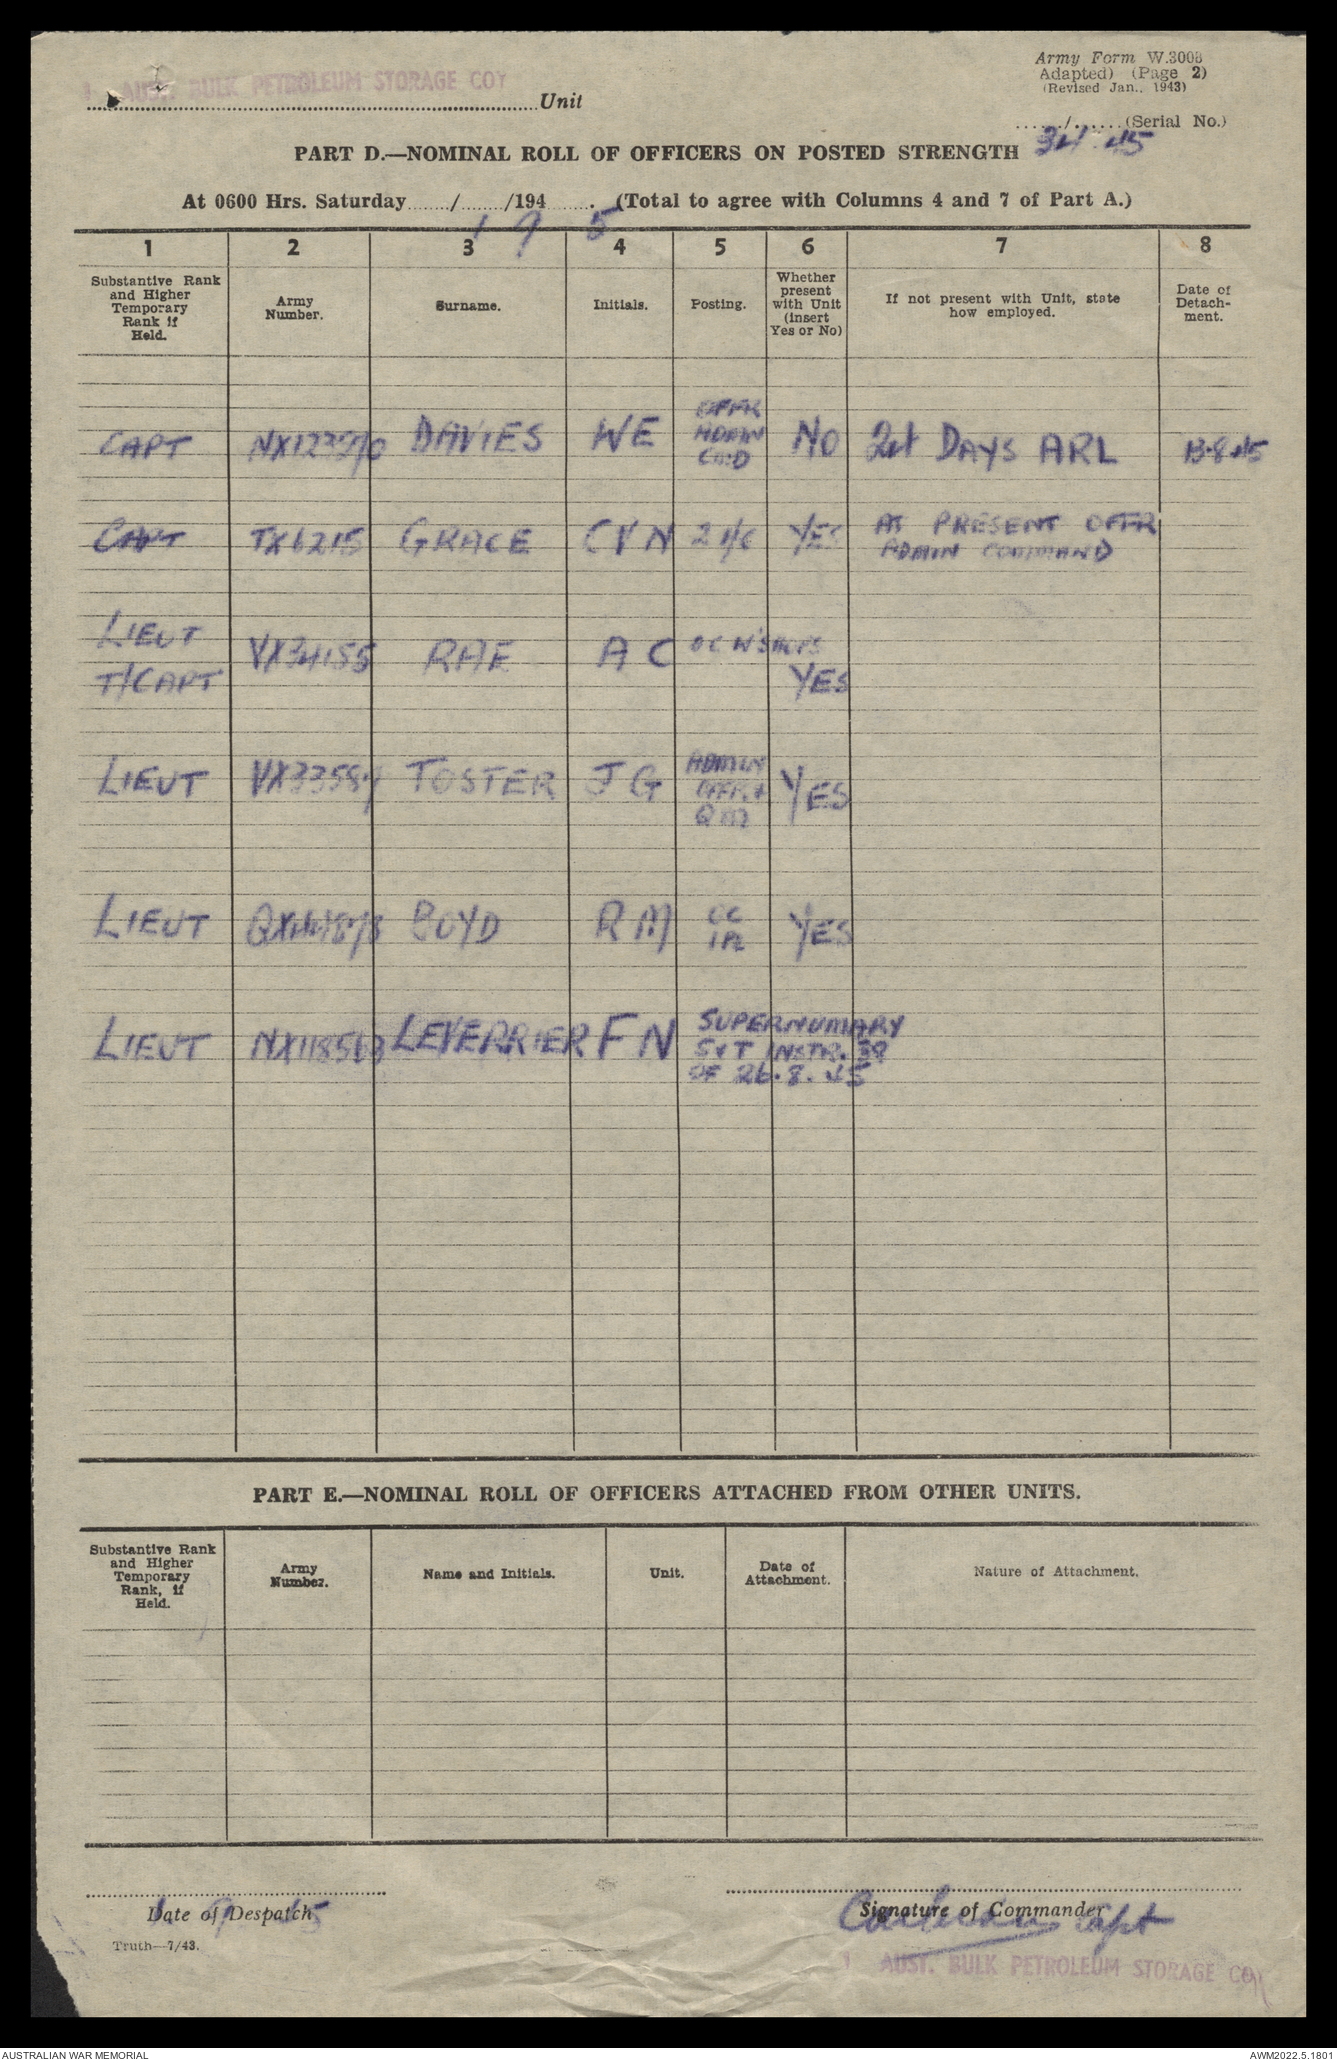 1 AUST. BULK PETROLEUM STORAGE COY
Unit
Army Form W.3008
Adapted) (Page 2)
(Revised Jan., 1943)
....../......(Serial No.)
34 45
PART D.—NOMINAL ROLL OF OFFICERS ON POSTED STRENGTH
At 0600 Hrs. Saturday....../....../194...... (Total to agree with Columns 4 and 7 of Part A.)
1 9 5
1 2 3 4 5 6 7 8
Substantive Rank and Higher Temporary Rank if Held.
Army Number.
Surname.
Initials.
Posting.
Whether present with Unit (insert Yes or No)
If not present with Unit, state how employed.
Date of Detachment.
CAPT DAVIES WE OFFR ADMIN COMD NO 24 DAYS ARL 13.8.45
CAPT TX6215 GRACE CVN 2 I/C YES AT PRESENT OFFR ADMIN COMMAND
LIEUT T/CAPT VX34155 RAE A C OC W'SHOPS YES
LIEUT TOSTER J G ADMIN OFFR & QM YES
LIEUT BOYD R M OC YES
LIEUT NX118563 LEVERRIER F N SUPERNUMARY
INSTR. 39
OF 26.8.45
PART E.—NOMINAL ROLL OF OFFICERS ATTACHED FROM OTHER UNITS.
Substantive Rank and Higher Temporary Rank, if Held.
Army Number.
Name and Initials.
Unit.
Date of Attachment.
Nature of Attachment.
1 9 45
Date of Despatch
Signature of Commander
Capt
Truth—7/43.
1 AUST. BULK PETROLEUM STORAGE COY
AUSTRALIAN WAR MEMORIAL
AWM2022.5.1801